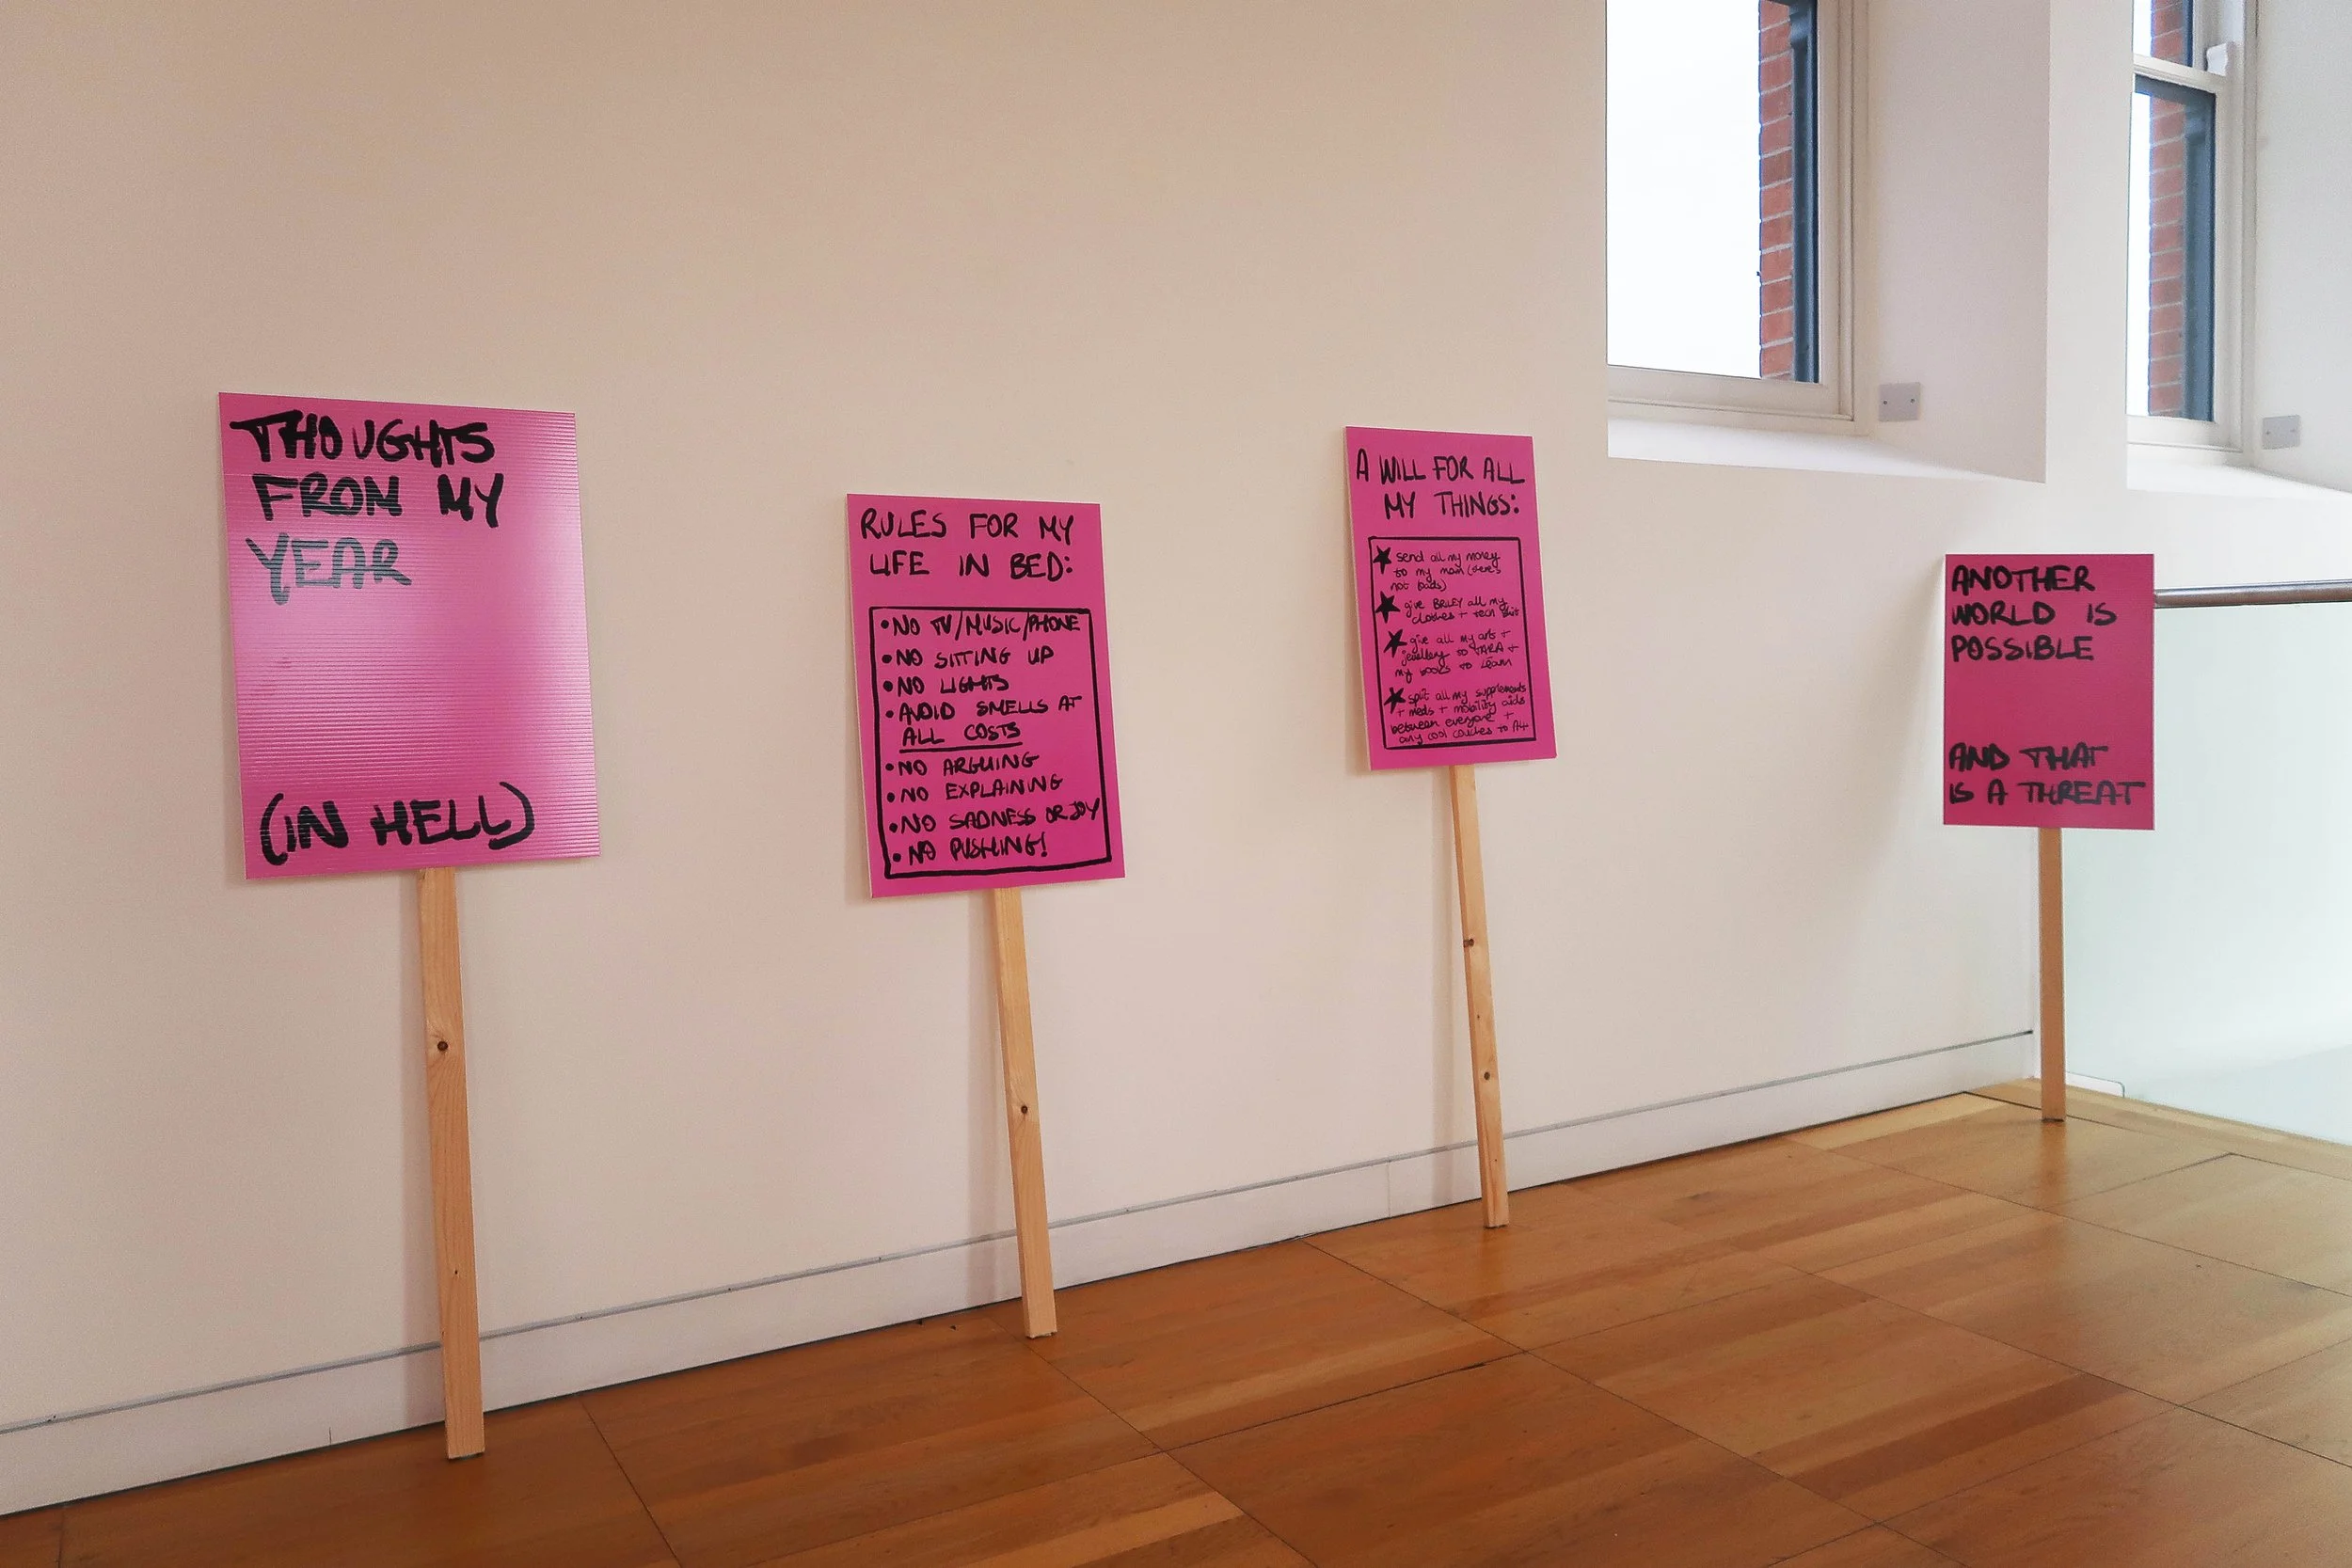 THOUGHTS
FROM MY
YEAR
(IN HELL)
RULES FOR MY
LIFE IN BED:
• NO TV/MUSIC/PHONE
• NO SITTING UP
• NO LIGHTS
• AVOID SMELLS AT
ALL COSTS
• NO ARGUING
• NO EXPLAINING
• NO SADNESS OR JOY
• NO PUSHING!
A WILL FOR ALL
MY THINGS:
★ send all my money
to my mom (there's
not loads)
★ give BAILEY all my
clothes + tech shit
★ give all my art +
jewellery to TARA +
my books to Leam
★ split all my supplements
+ meds + mobility aids
between everyone +
any cool coaches to
ANOTHER
WORLD IS
POSSIBLE
AND THAT
IS A THREAT